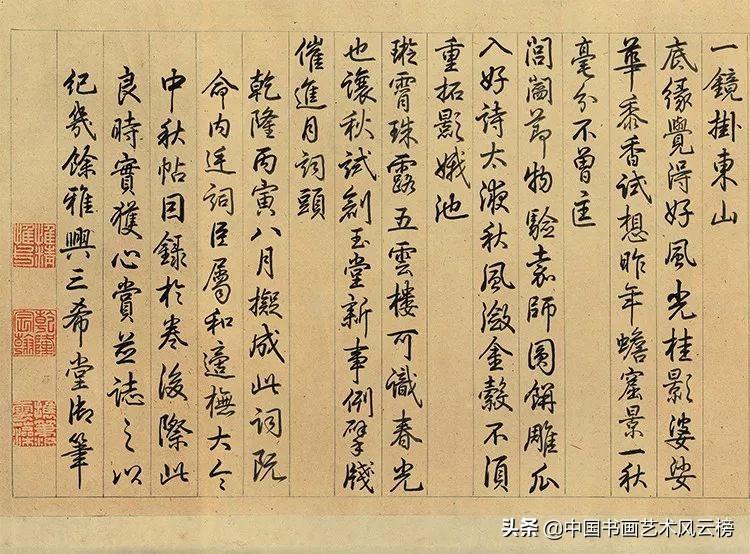 一鏡掛東山
底緣覺得好風光桂影婆娑
華黍香試想昨年蟾窟景一秋
毫分不曾
閶闔節物驗師圓餅雕瓜
入好詩太液秋風瀲金縠不須
重拓影娥池
璇霄珠露五雲樓可識春光
也讓秋試創玉堂新事例擘牋
催進月詞頭
乾隆丙寅八月擬成此詞既
命內廷詞臣屬和適橅大令
中秋帖因錄於卷後際此
良時實獲心賞並誌之以
紀幾餘雅興三希堂御筆
乾隆宸翰
头条 @中国书画艺术风云榜